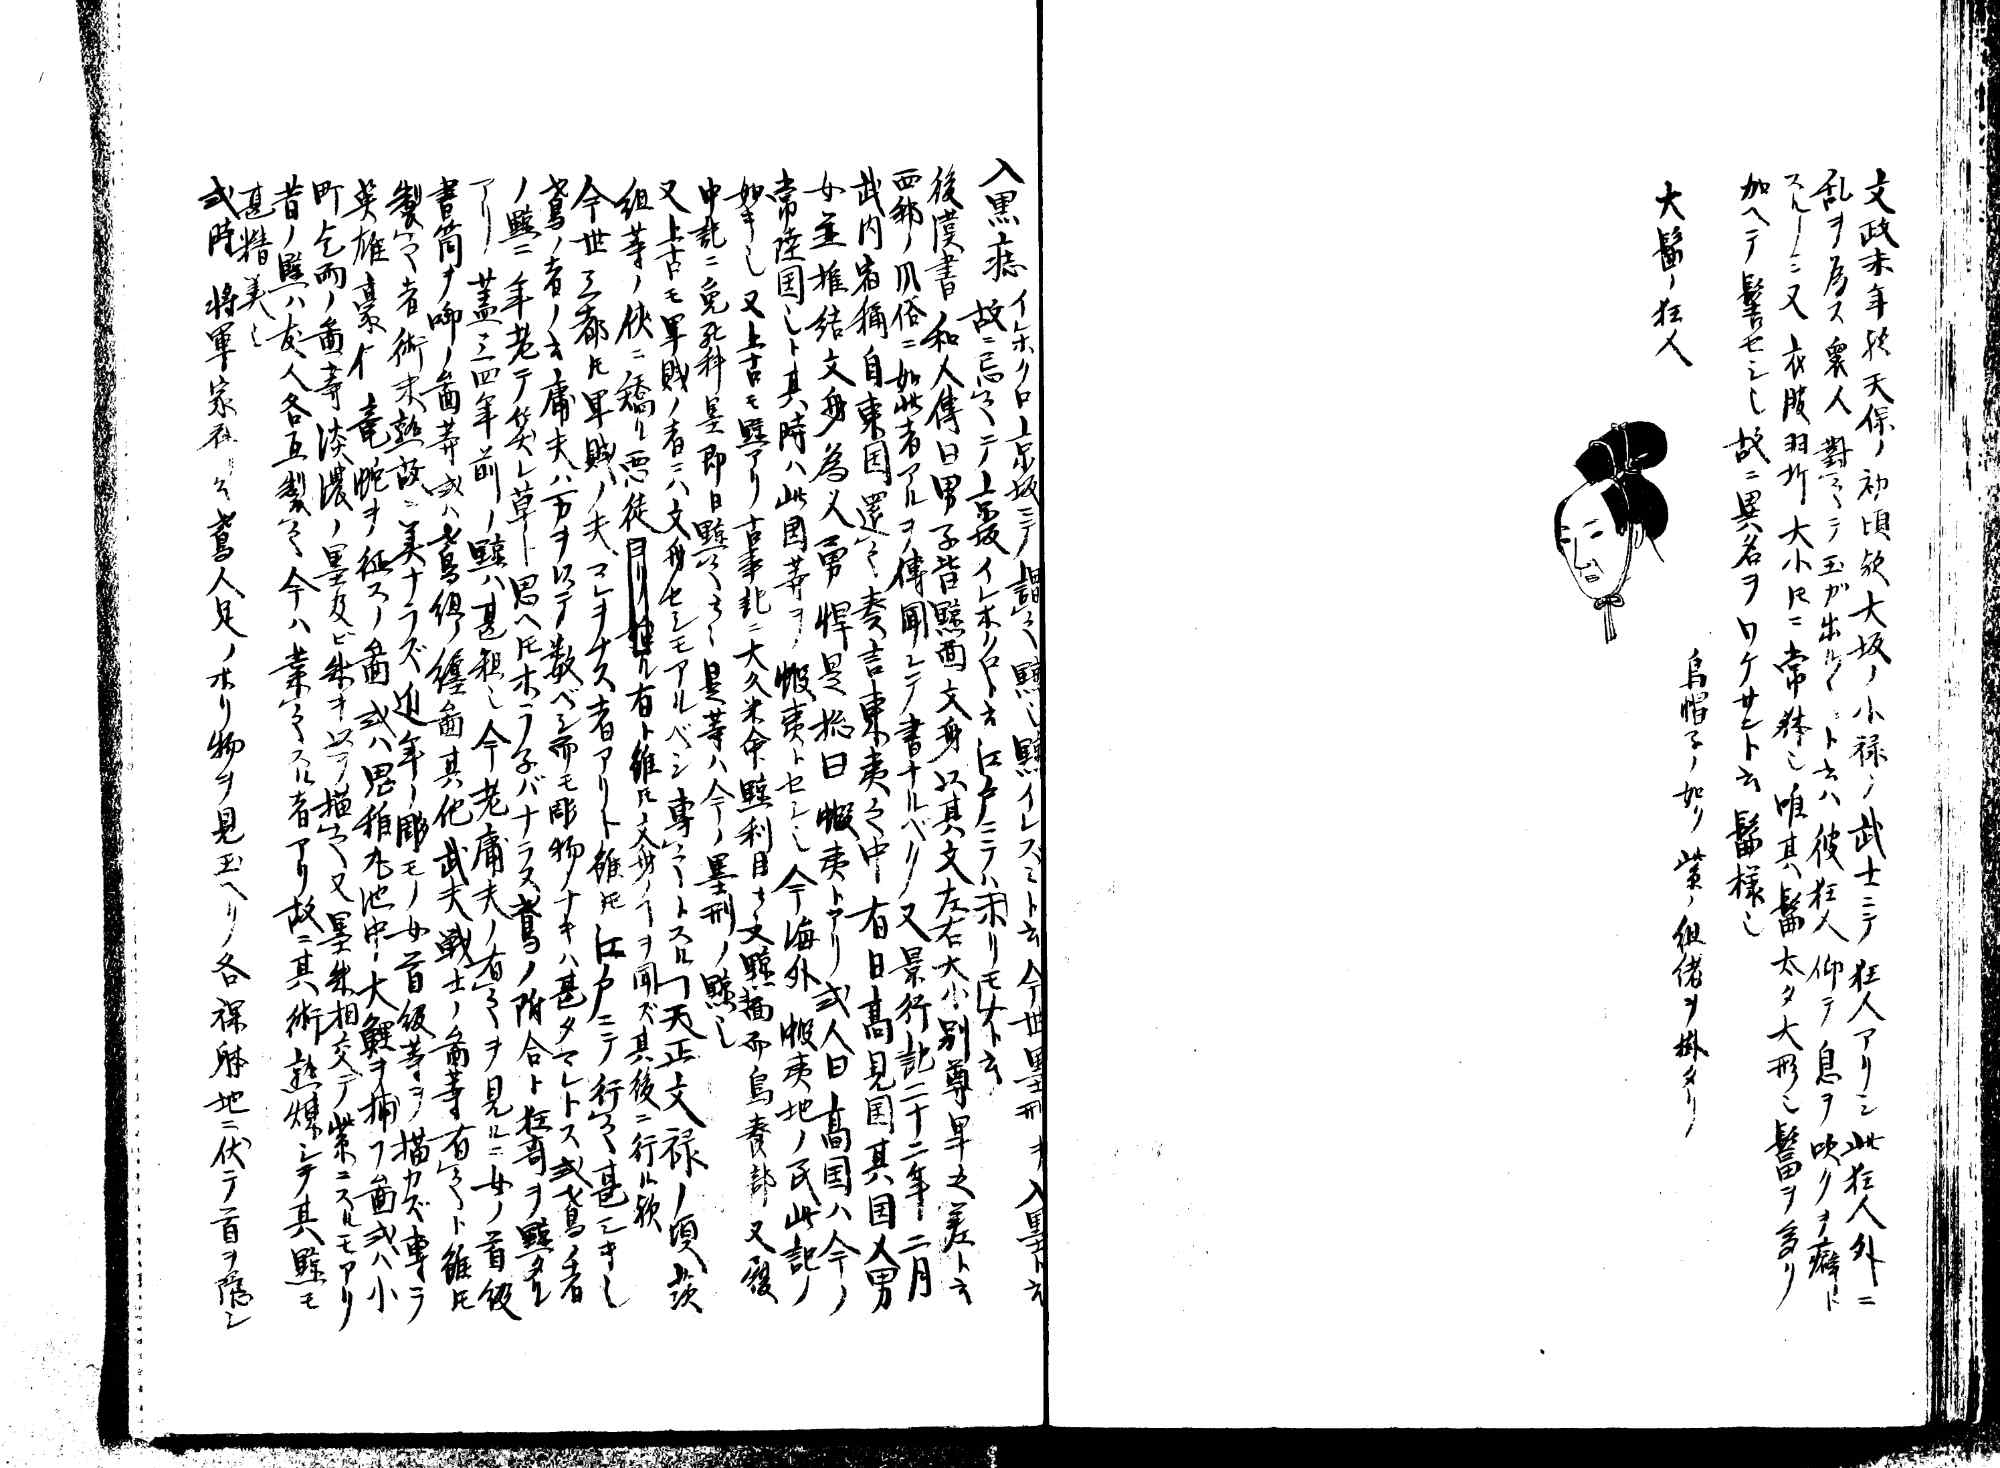 文政末年歟天保ノ初頃歟大坂ノ小禄ノ武士ニテ狂人アリシ此狂人外ニ
乱ヲ為ス衆人ニ對シテ玉ガ出ル〱ト云ハ彼狂人仰テ息ヲ吹クヲ癖ト
スルノミ又衣服羽折大小トモニ常体也唯其髷太タ大形也髷ヲ多リ
加ヘテ髻セシ也故ニ異名ヲワケサント云髷様也
大髷ノ狂人
烏帽子ノ如ク紫ノ組緒ヲ掛タリ
入黒痣
イレホクロ上京坂ニテノ謂也黥也黥イレズミト云今世墨刑ヲ入墨ト云
故ニ忌テ上京坂イレホクロト云江戸ニテハホリモノト云
後漢書ノ和人傳曰男子皆黥面文身以其文左右大小別尊卑之差ト云
西鄙ノ風俗ニ如此者アルヲ傳聞シテ書ナルベク又景行記二十二年二月
武内宿祢自東国還之奏言東夷之中有日高見国其国人男
女並椎結文身為人勇悍是捴曰蝦夷トアリ或人曰高国ハ今ノ
常陸国也ト其時ハ此国等ヲ蝦夷トセシ也今海外蝦夷地ノ民此記ノ
如キ也又上古モ黥アリ古事記ニ大久米命黥利目又黥面而鳥養部又履
中記ニ免死科墨即日黥之是等ハ今ノ墨刑ノ黥也
又上古モ卑賎ノ者ニハ文身セシモアルベシ専トスルハ天正文禄ノ頃茨
組等ノ侠ニ矯リ悪徒ヨリ有ト雖トモ文身ノヿヲ聞ズ其後ニ行ル歟
今世三都トモ卑賎ノ夫コレヲナス者アリト雖トモ江戸ニテ行コト甚シキ也
鳶ノ者ノ云庸夫ハ万ヲ以テ数ベシ而モ彫物ノナキハ甚タマレトス或鳶ノ者
ノ黥ニ年老テ笑レ草ト思ヘトモホラ子バナラヌ鳶ノ附合ト狂哥ヲ黥タル
アリ蓋三四年前ノ黥ハ甚粗也今老庸夫ノ有ヲ見ルニ女ノ首級
書筒ヲ啣ノ啚等或ハ鳶組ノ纏啚其他武夫戦士ノ啚等有ト雖トモ
製者術未熟故ニ美ナラズ近年ノ彫モノ女首級等ヲ描カズ専ラ
英雄豪仆竜蛇ヲ征スノ啚或ハ鬼稚丸池中ノ大鯉ヲ捕フ啚或ハ小
町乞雨ノ啚等淡濃ノ墨及ビ朱ヲ以テ描之又墨朱相交テ紫ニスルモアリ
昔ノ黥ハ友人各互製之今ハ業之スル者アリ故ニ其術熟煉シテ其黥モ
甚精美也
或時将軍家鳶人足ノホリ物ヲ見玉ヘリ各裸躰地ニ伏テ首ヲ隠シ